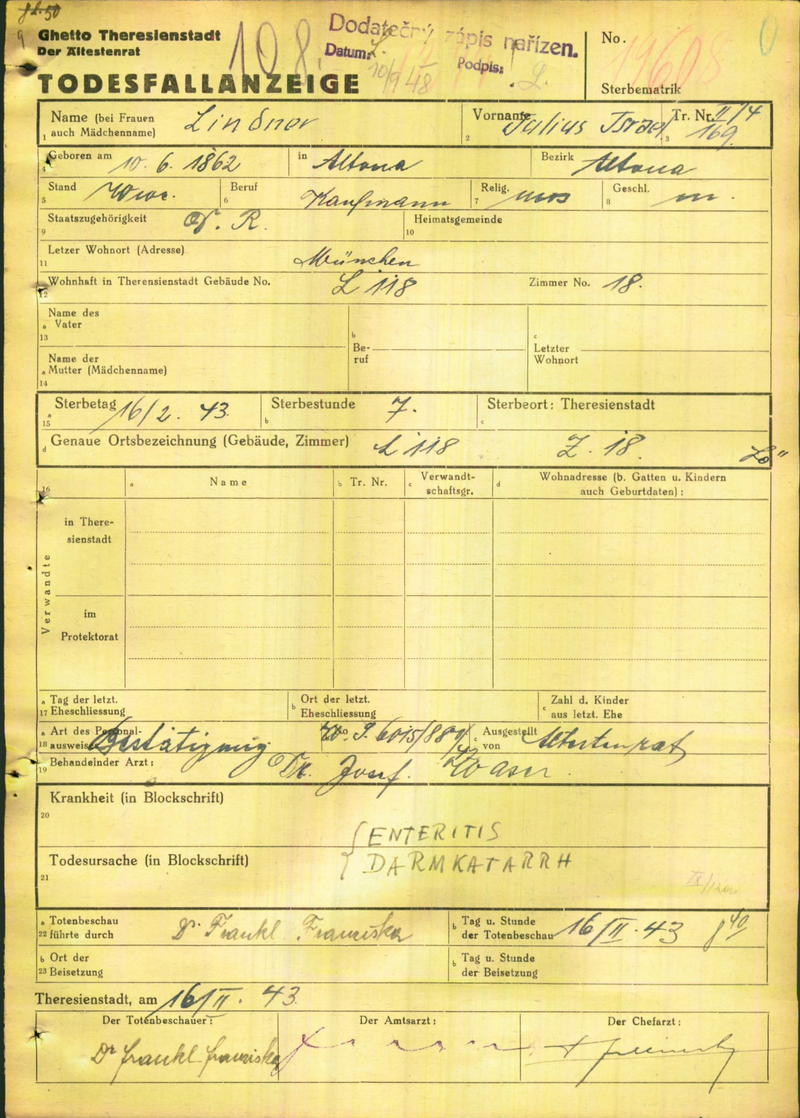 Ghetto Theresienstadt
Der Ältestenrat
TODESFALLANZEIGE
108
Dodatečný zápis nařízen.
Datum: 10/9 48 Podpis:
No. 19608
Sterbematrik
Name (bei Frauen auch Mädchenname) Lindner
1
Vorname Julius Israel
2
Tr. Nr. II/4 169
3
Geboren am 10. 6. 1862 in Altona Bezirk Altona
4
Stand Witwe. Beruf Kaufmann Relig. mos Geschl. m.
5 6 7 8
Staatszugehörigkeit D. R. Heimatsgemeinde
9 10
Letzer Wohnort (Adresse) München
11
Wohnhaft in Theresienstadt Gebäude No. L 118 Zimmer No. 18.
12
Name des
a Vater
13
b Beruf
c Letzter Wohnort
Name der
a Mutter (Mädchenname)
14
a Sterbetag 16/2. 43 b Sterbestunde 7. c Sterbeort: Theresienstadt
15
d Genaue Ortsbezeichnung (Gebäude, Zimmer) L 118 Z. 18.
16 a Name b Tr. Nr. c Verwandtschaftsgr. d Wohnadresse (b. Gatten u. Kindern auch Geburtdaten) :
Verwandte
in Theresienstadt
im Protektorat
a Tag der letzt.
17 Eheschliessung
b Ort der letzt.
Eheschliessung
c Zahl d. Kinder
aus letzt. Ehe
a Art des Personalausweises Bestätigung b No. 6015/889/42 c Ausgestellt von Ältestenrat
18
Behandelnder Arzt : Dr. Josef
19
Krankheit (in Blockschrift)
20
ENTERITIS
Todesursache (in Blockschrift) DARMKATARRH
21
a Totenbeschau
22 führte durch Dr. Frankl Franziska
b Tag u. Stunde
der Totenbeschau 16/II. 43 8 40
b Ort der
23 Beisetzung
b Tag u. Stunde
der Beisetzung
Theresienstadt, am 16/II. 43
Der Totenbeschauer : Der Amtsarzt : Der Chefarzt :
Dr Frankl Franziska